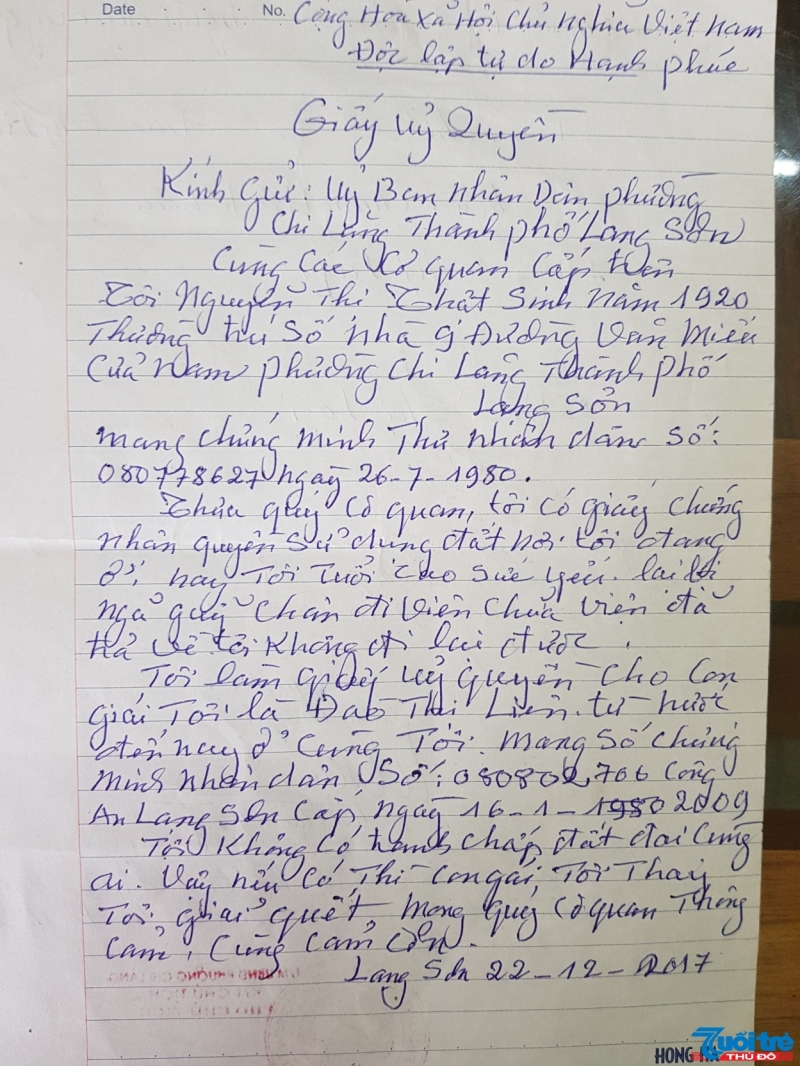 Date No. Cộng Hoà Xã Hội Chủ Nghĩa Việt Nam
Độc lập tự do Hạnh phúc
Giấy Uỷ Quyền
Kính Gửi: Uỷ Ban nhân Dân phường
Chi Lăng Thành phố Lạng Sơn
Cùng Các Cơ quan Cấp trên
Tôi Nguyễn Thị Thật Sinh năm 1920
Thường trú Số nhà 9 Đường Văn Miếu
Cửa Nam phường Chi Lăng Thành phố
Lạng Sơn
mang chứng minh Thư nhân dân số:
080778627 ngày 26-7-1980.
Thưa quý cơ quan, tôi có giấy chứng
nhận quyền sử dụng đất nơi tôi đang
ở, nay Tôi Tuổi cao sức yếu. lại bị
ngã quỹ chân đi viện chữa viện đã
trả về tôi không đi lại được.
Tôi làm giấy uỷ quyền cho con
gái Tôi là Đào Thị Liên. từ trước
đến nay ở cùng Tôi. mang số chứng
minh nhân dân Số: 080802766 công
An Lạng Sơn Cấp, ngày 16-1-2009
Tôi không có tranh chấp đất đai cùng
ai. Vậy nếu có Thì con gái Tôi Thay
Tôi giải quyết, mong quý cơ quan Thông
cảm, Cùng cảm ơn.
Lạng Sơn 22-12-2017
HONG HA
Tuổi trẻ
THỦ ĐÔ